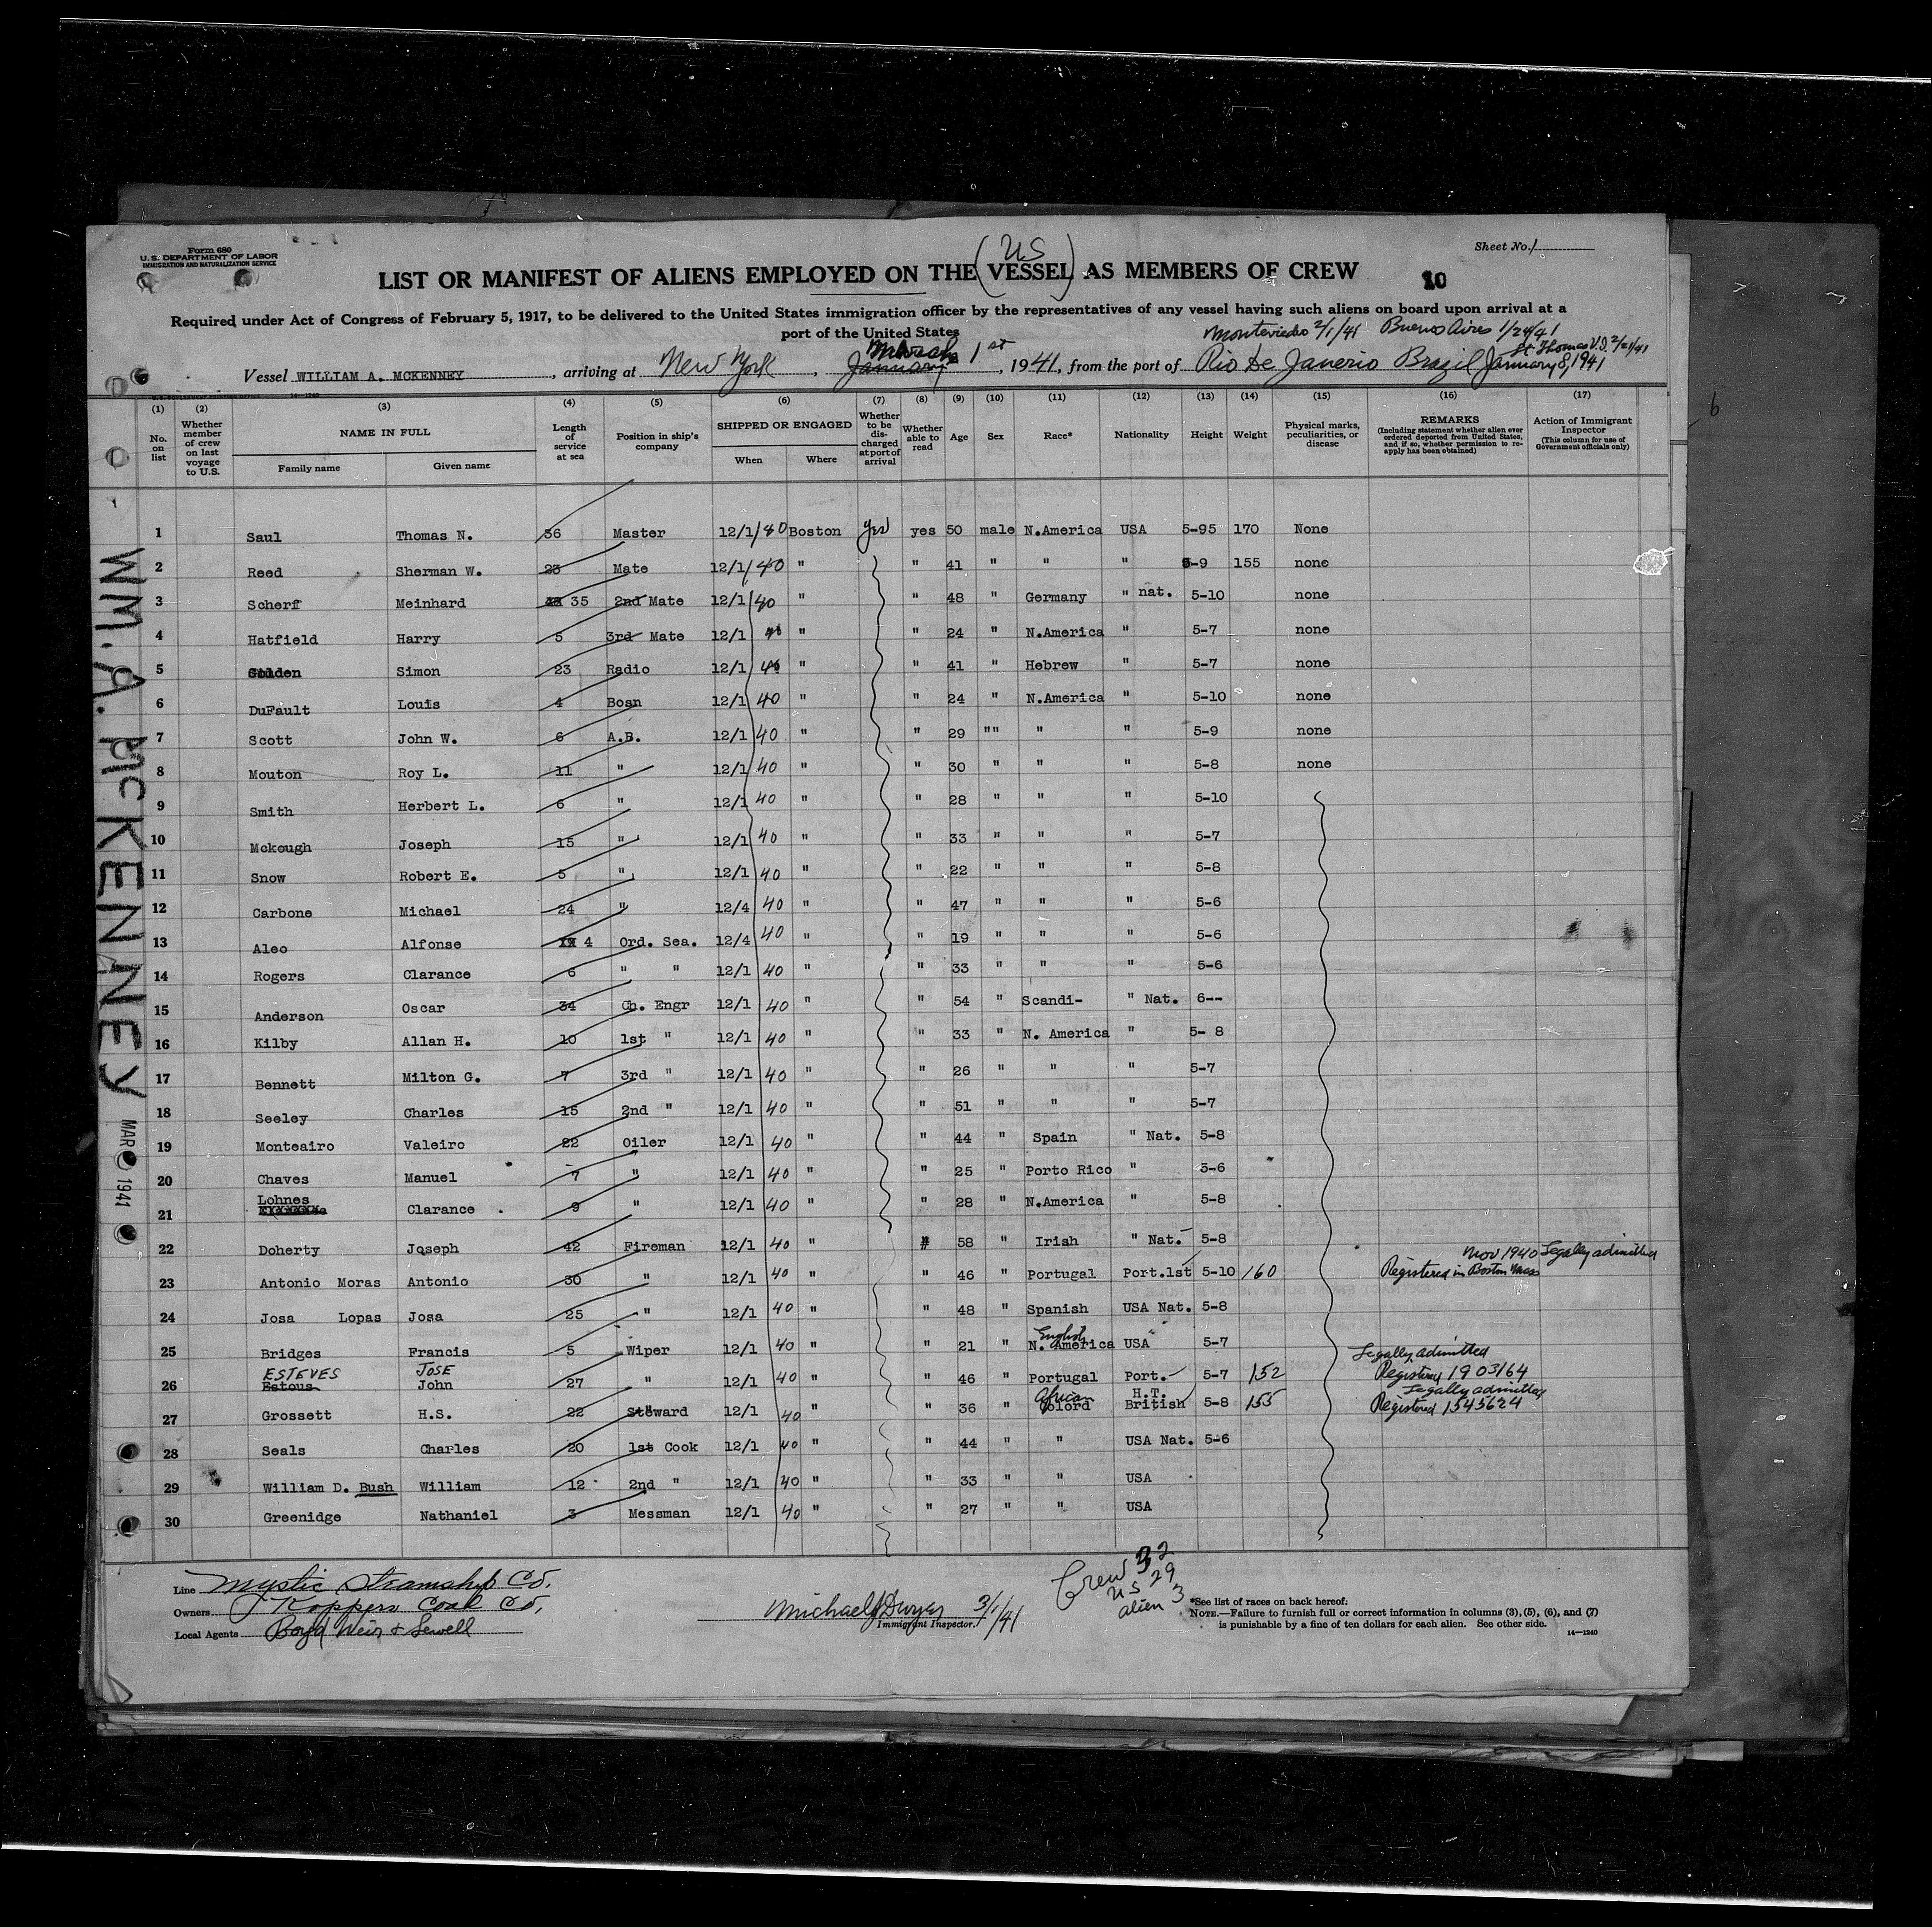 Form 680
U.S. DEPARTMENT OF LABOR
IMMIGRATION AND NATURALIZATION SERVICE
Sheet No. 1
(US)
LIST OR MANIFEST OF ALIENS EMPLOYED ON THE (VESSEL) AS MEMBERS OF CREW
10
Required under Act of Congress of February 5, 1917, to be delivered to the United States immigration officer by the representatives of any vessel having such aliens on board upon arrival at a
port of the United States
Monteviedo 2/1/41 Buenos Aires 1/24/41
St Thomas V.I. 2/21/41
Vessel WILLIAM A. MCKENNEY, arriving at New York, January March 1st, 1941, from the port of Rio De Janerio Brazil January 8, 1941
(1) (2) (3) (4) (5) (6) (7) (8) (9) (10) (11) (12) (13) (14) (15) (16) (17)
No. on list
Whether member of crew on last voyage to U.S.
NAME IN FULL
Family name Given name
Length of service at sea
Position in ship's company
SHIPPED OR ENGAGED
When Where
Whether to be discharged at port of arrival
Whether able to read
Age
Sex
Race*
Nationality
Height
Weight
Physical marks, peculiarities, or disease
REMARKS
(Including statement whether alien ever ordered deported from United States, and if so, whether permission to reapply has been obtained)
Action of Immigrant Inspector
(This column for use of Government officials only)
1 Saul Thomas N. 36 Master 12/1/40 Boston yes yes 50 male N.America USA 5-95 170 None
2 Reed Sherman W. 23 Mate 12/1/40 " " 41 " " " 5-9 155 none
3 Scherf Meinhard 35 2nd Mate 12/1 40 " " 48 " Germany " nat. 5-10 none
4 Hatfield Harry 5 3rd Mate 12/1 40 " " 24 " N.America " 5-7 none
5 Simon 23 Radio 12/1 40 " " 41 " Hebrew " 5-7 none
6 DuFault Louis 4 Bosn 12/1 40 " " 24 " N.America " 5-10 none
7 Scott John W. 6 A.B. 12/1 40 " " 29 "" " " 5-9 none
8 Mouton Roy L. 11 " 12/1 40 " " 30 " " " 5-8 none
9 Smith Herbert L. 6 " 12/1 40 " " 28 " " " 5-10
10 Mckough Joseph 15 " 12/1 40 " " 33 " " " 5-7
11 Snow Robert E. 5 " 12/1 40 " " 22 " " " 5-8
12 Carbone Michael 24 " 12/4 40 " " 47 " " " 5-6
13 Aleo Alfonse 4 Ord. Sea. 12/4 40 " " 19 " " " 5-6
14 Rogers Clarance 6 " " 12/1 40 " " 33 " " " 5-6
15 Anderson Oscar 34 Ch. Engr 12/1 40 " " 54 " Scandi- " Nat. 6--
16 Kilby Allan H. 10 1st " 12/1 40 " " 33 " N. America " 5- 8
17 Bennett Milton G. 7 3rd " 12/1 40 " " 26 " " " 5-7
18 Seeley Charles 15 2nd " 12/1 40 " " 51 " " " 5-7
19 Monteairo Valeiro 22 Oiler 12/1 40 " " 44 " Spain " Nat. 5-8
20 Chaves Manuel 7 " 12/1 40 " " 25 " Porto Rico " 5-6
21 Lohnes Clarance 9 " 12/1 40 " " 28 " N.America " 5-8
22 Doherty Joseph 42 Fireman 12/1 40 " " 58 " Irish " Nat. 5-8
23 Antonio Moras Antonio 30 " 12/1 40 " " 46 " Portugal Port.1st 5-10 160 Nov 1940 Legally admitted
Registered in Boston Mass
24 Josa Lopas Josa 25 " 12/1 40 " " 48 " Spanish USA Nat. 5-8
25 Bridges Francis 5 Wiper 12/1 40 " " 21 " English N. America USA 5-7
26 ESTEVES Estous JOSE John 27 " 12/1 40 " " 46 " Portugal Port. 5-7 152 Legally admitted
Registered 1903164
27 Grossett H.S. 22 Steward 12/1 40 " " 36 " African Colord H.T. British 5-8 155 Legally admitted
Registered 1545624
28 Seals Charles 20 1st Cook 12/1 40 " " 44 " " USA Nat. 5-6
29 William D. Bush William 12 2nd " 12/1 40 " " 33 " " USA
30 Greenidge Nathaniel 3 Messman 12/1 40 " " 27 " " USA
WM. A. McKENNEY
MAR 1941
Line Mystic Steamship Co.
Owners Koppers Coal Co.
Local Agents Boyd Weir & Sewell
Michael J Dwyer 3/1/41
Immigrant Inspector.
Crew 32
US 29
alien 3
*See list of races on back hereof.
NOTE.—Failure to furnish full or correct information in columns (3), (5), (6), and (7)
is punishable by a fine of ten dollars for each alien. See other side.
14—1240